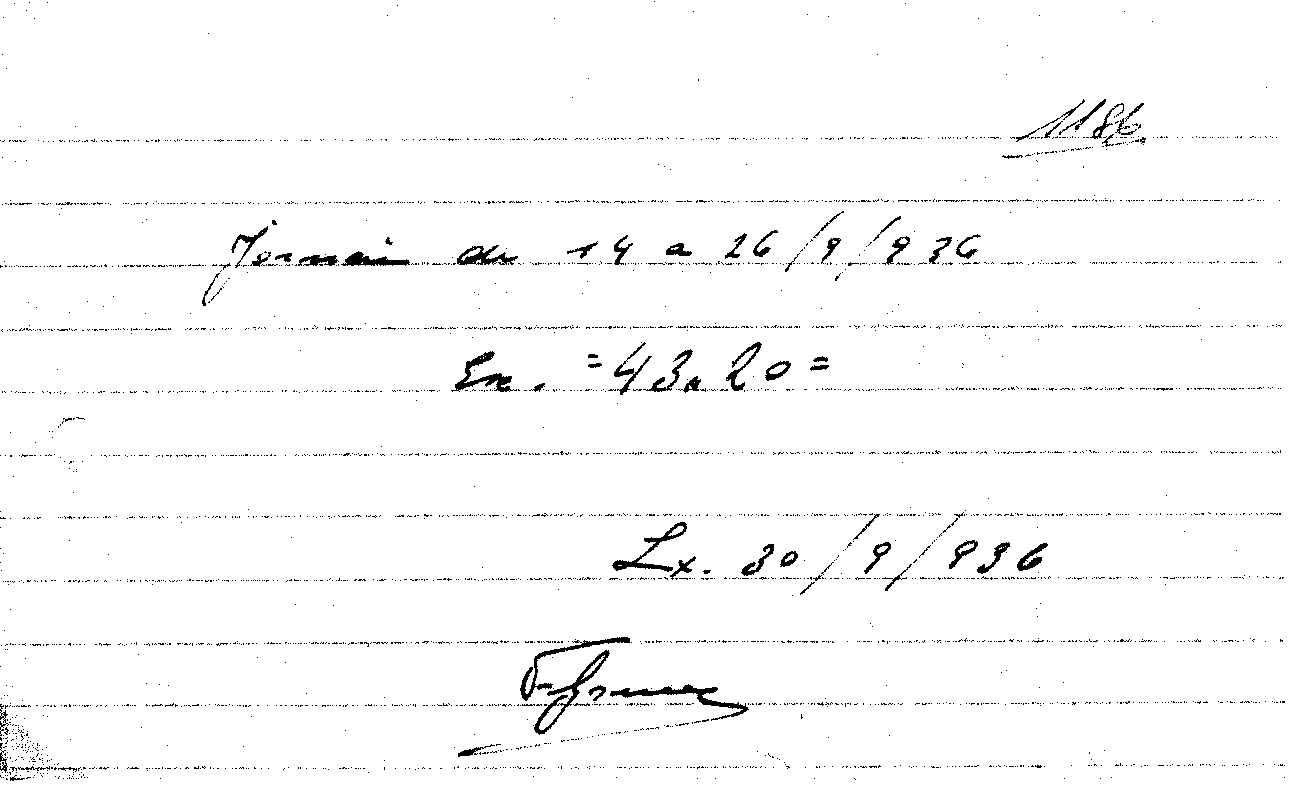 1186
Jornais de 14 a 26/9/936
Esc. =43.20=
Lx. 30/9/936